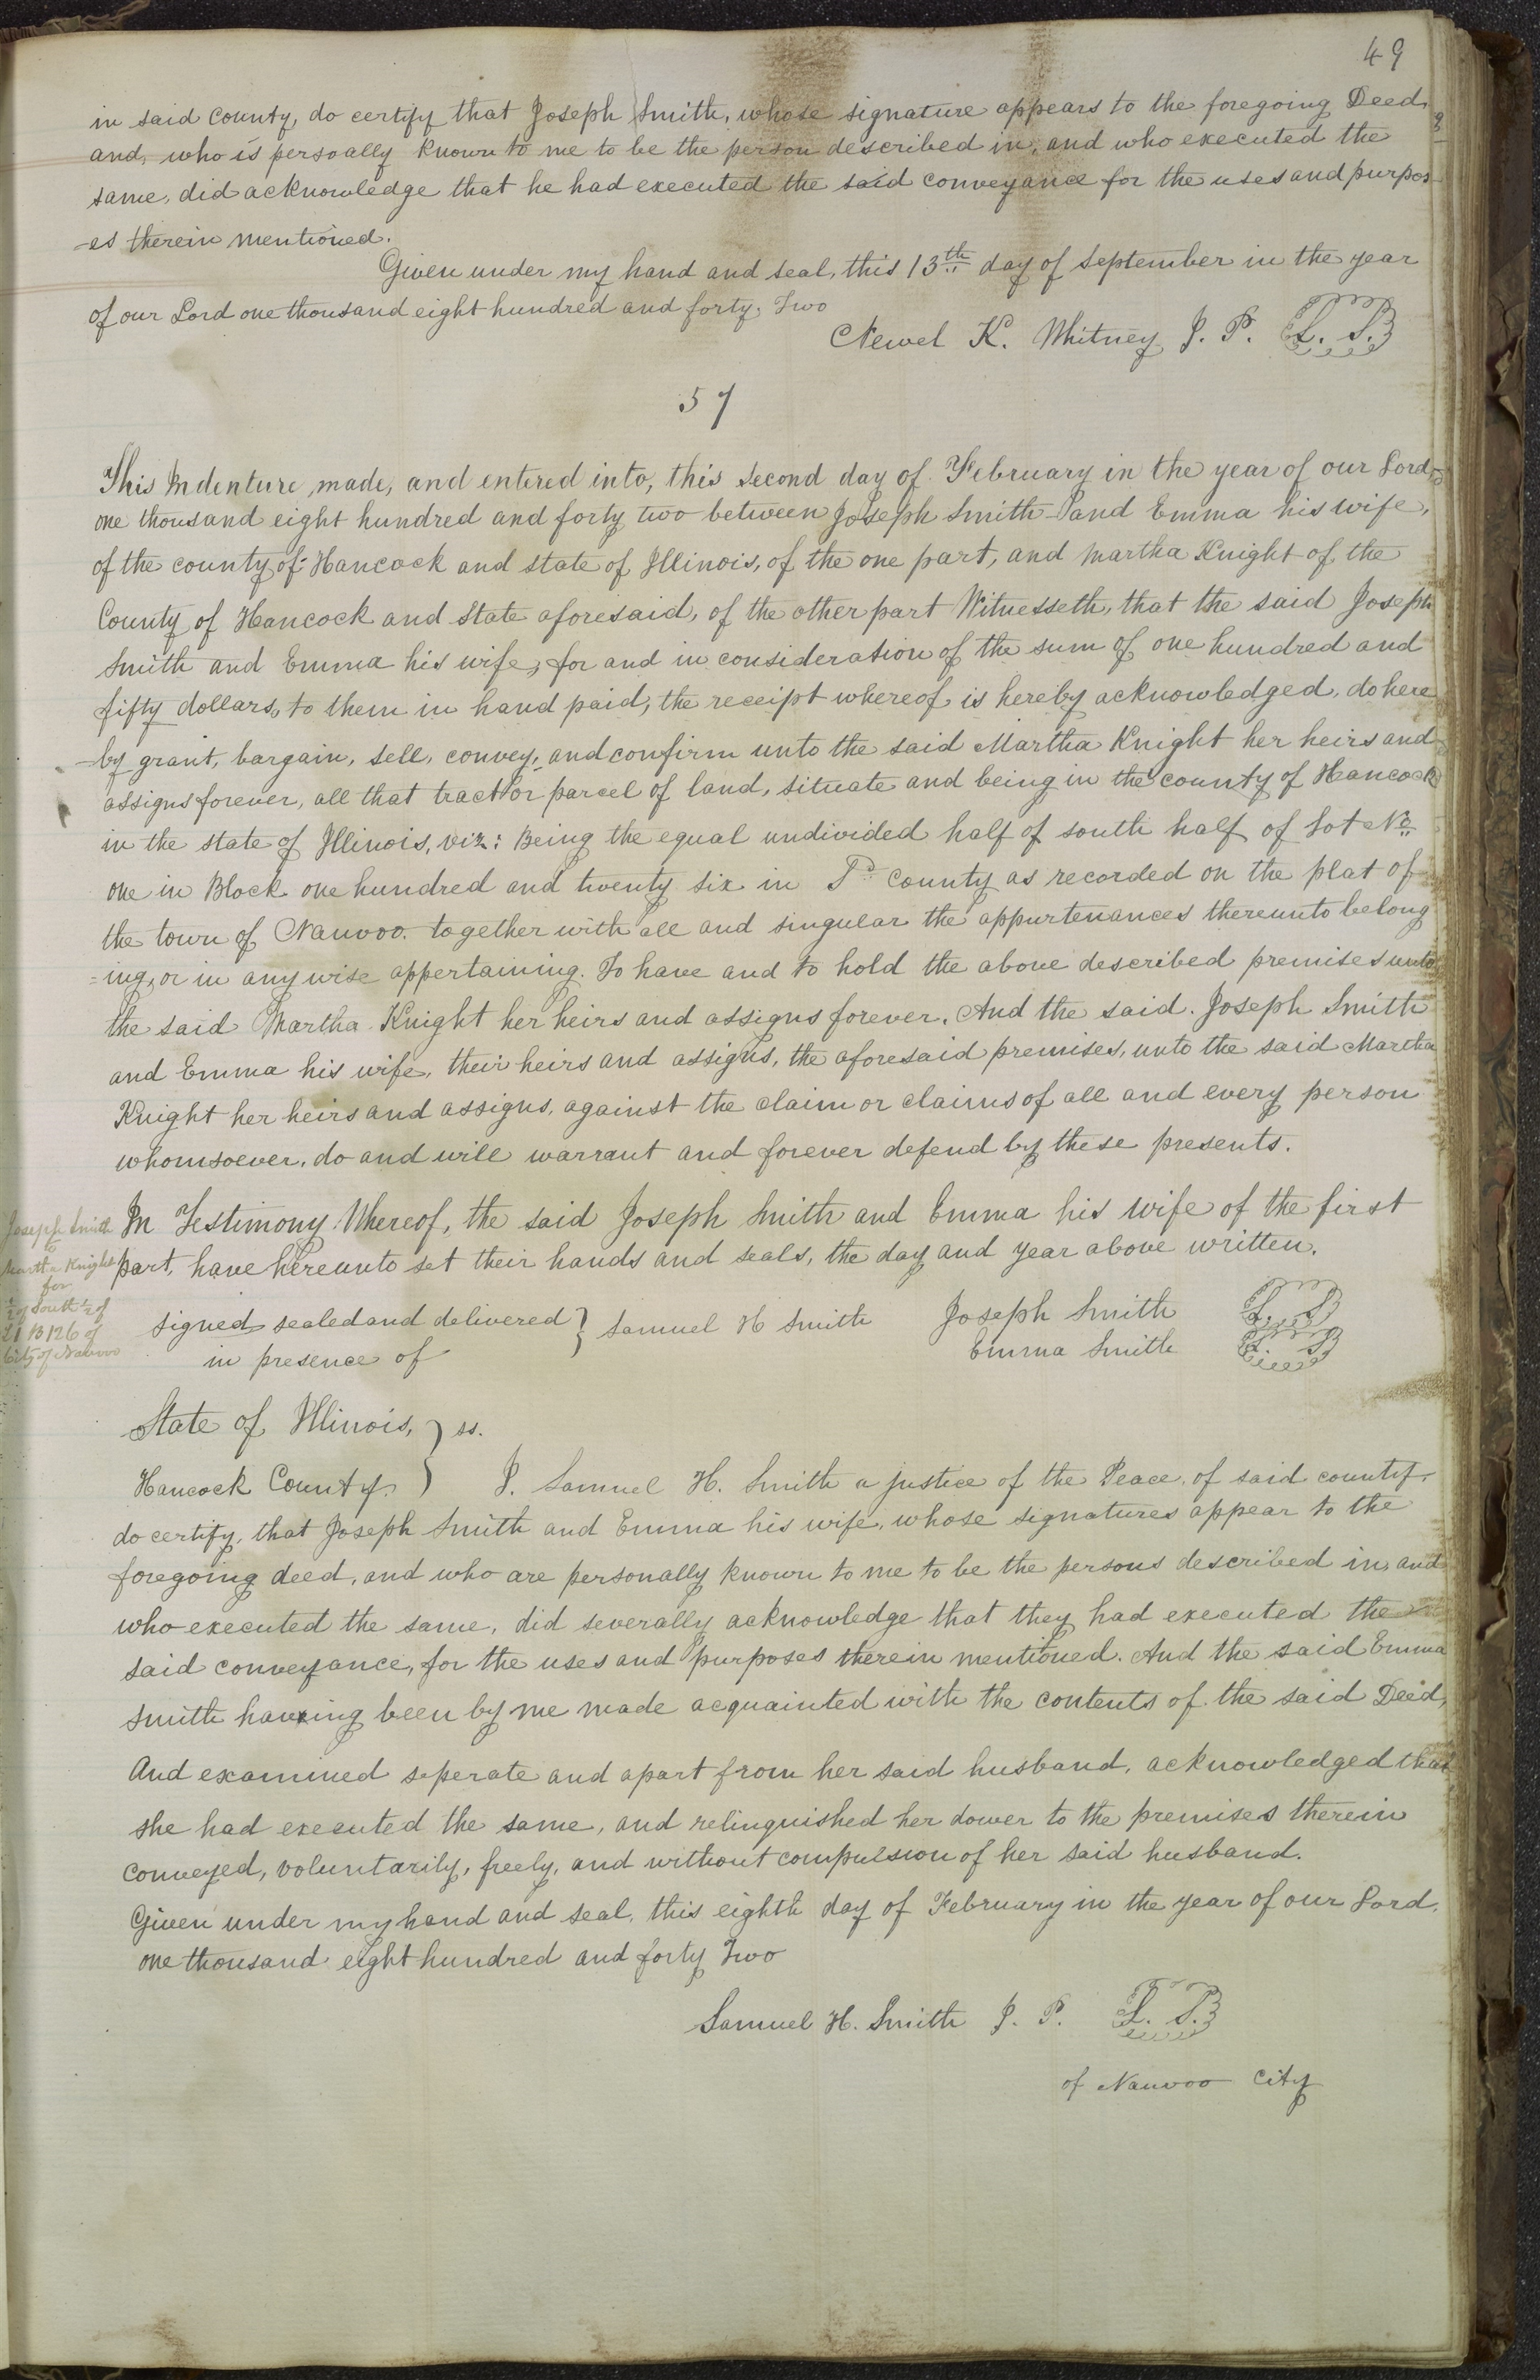 49
in said county, do certify that Joseph Smith, whose signature appears to the foregoing Deed,
and, who is persoally known to me to be the person described in, and who executed the
same, did acknowledge that he had executed the said conveyance for the uses and purpos
-es therein mentioned.
Given under my hand and seal, this 13th day of September in the year
of our Lord one thousand eight hundred and forty, Two
Newel K. Whitney J. P. L. S.
57
This Indenture, made, and entered into, this second day of February in the year of our Lord,
one thousand eight hundred and forty two between Joseph Smith and Emma his wife,
of the county of Hancock and state of Illinois, of the one part, and Martha Knight of the
County of Hancock and State aforesaid, of the other part Witnesseth, that the said Joseph
Smith and Emma his wife, for and in consideration of the sum of one hundred and
fifty dollars, to them in hand paid, the receipt whereof is hereby acknowledged, do here
-by grant, bargain, sell, convey, and confirm unto the said Martha Knight her heirs and
assigns forever, all that tract or parcel of land, situate and being in the county of Hancock
in the state of Illinois, viz: Being the equal undivided half of south half of Lot No
one in Block one hundred and twenty six in county as recorded on the plat of
the town of Nauvoo. together with all and singular the appurtenances thereunto belong
=ing, or in any wise appertaining. To have and to hold the above described premises unto
the said Martha Knight her heirs and assigns forever. And the said. Joseph Smith
and Emma his wife, their heirs and assigns, the aforesaid premises, unto the said Martha
Knight her heirs and assigns, against the claim or claims of all and every person
whomsoever, do and will warrant and forever defend by these presents.
In Testimony Whereof, the said Joseph Smith and Emma his wife of the first
part, have hereunto set their hands and seals, the day and year above written.
Joseph Smith
to
Martha Knight
for
½ of South ½ of
L 1 B 126 of
City of Nauvoo
signed sealed and delivered } Samuel H Smith Joseph Smith L. S.
in presence of Emma Smith L. S.
State of Illinois, } ss.
Hancock County. } I. Samuel H. Smith a justice of the Peace, of said county,
do certify, that Joseph Smith and Emma his wife, whose signatures appear to the
foregoing deed, and who are personally known to me to be the persons described in, and
who executed the same, did severally acknowledge that they had executed the
said conveyance, for the uses and purposes therein mentioned. And the said Emma
Smith having been by me made acquainted with the contents of the said Deed,
And examined seperate and apart from her said husband, acknowledged that
she had executed the same, and relinquished her dower to the premises therein
conveyed, voluntarily, freely, and without compulsion of her said husband.
Given under my hand and seal, this eighth day of February in the year of our Lord,
one thousand eight hundred and forty Two
Samuel H. Smith J. P. L. S.
of Nauvoo City